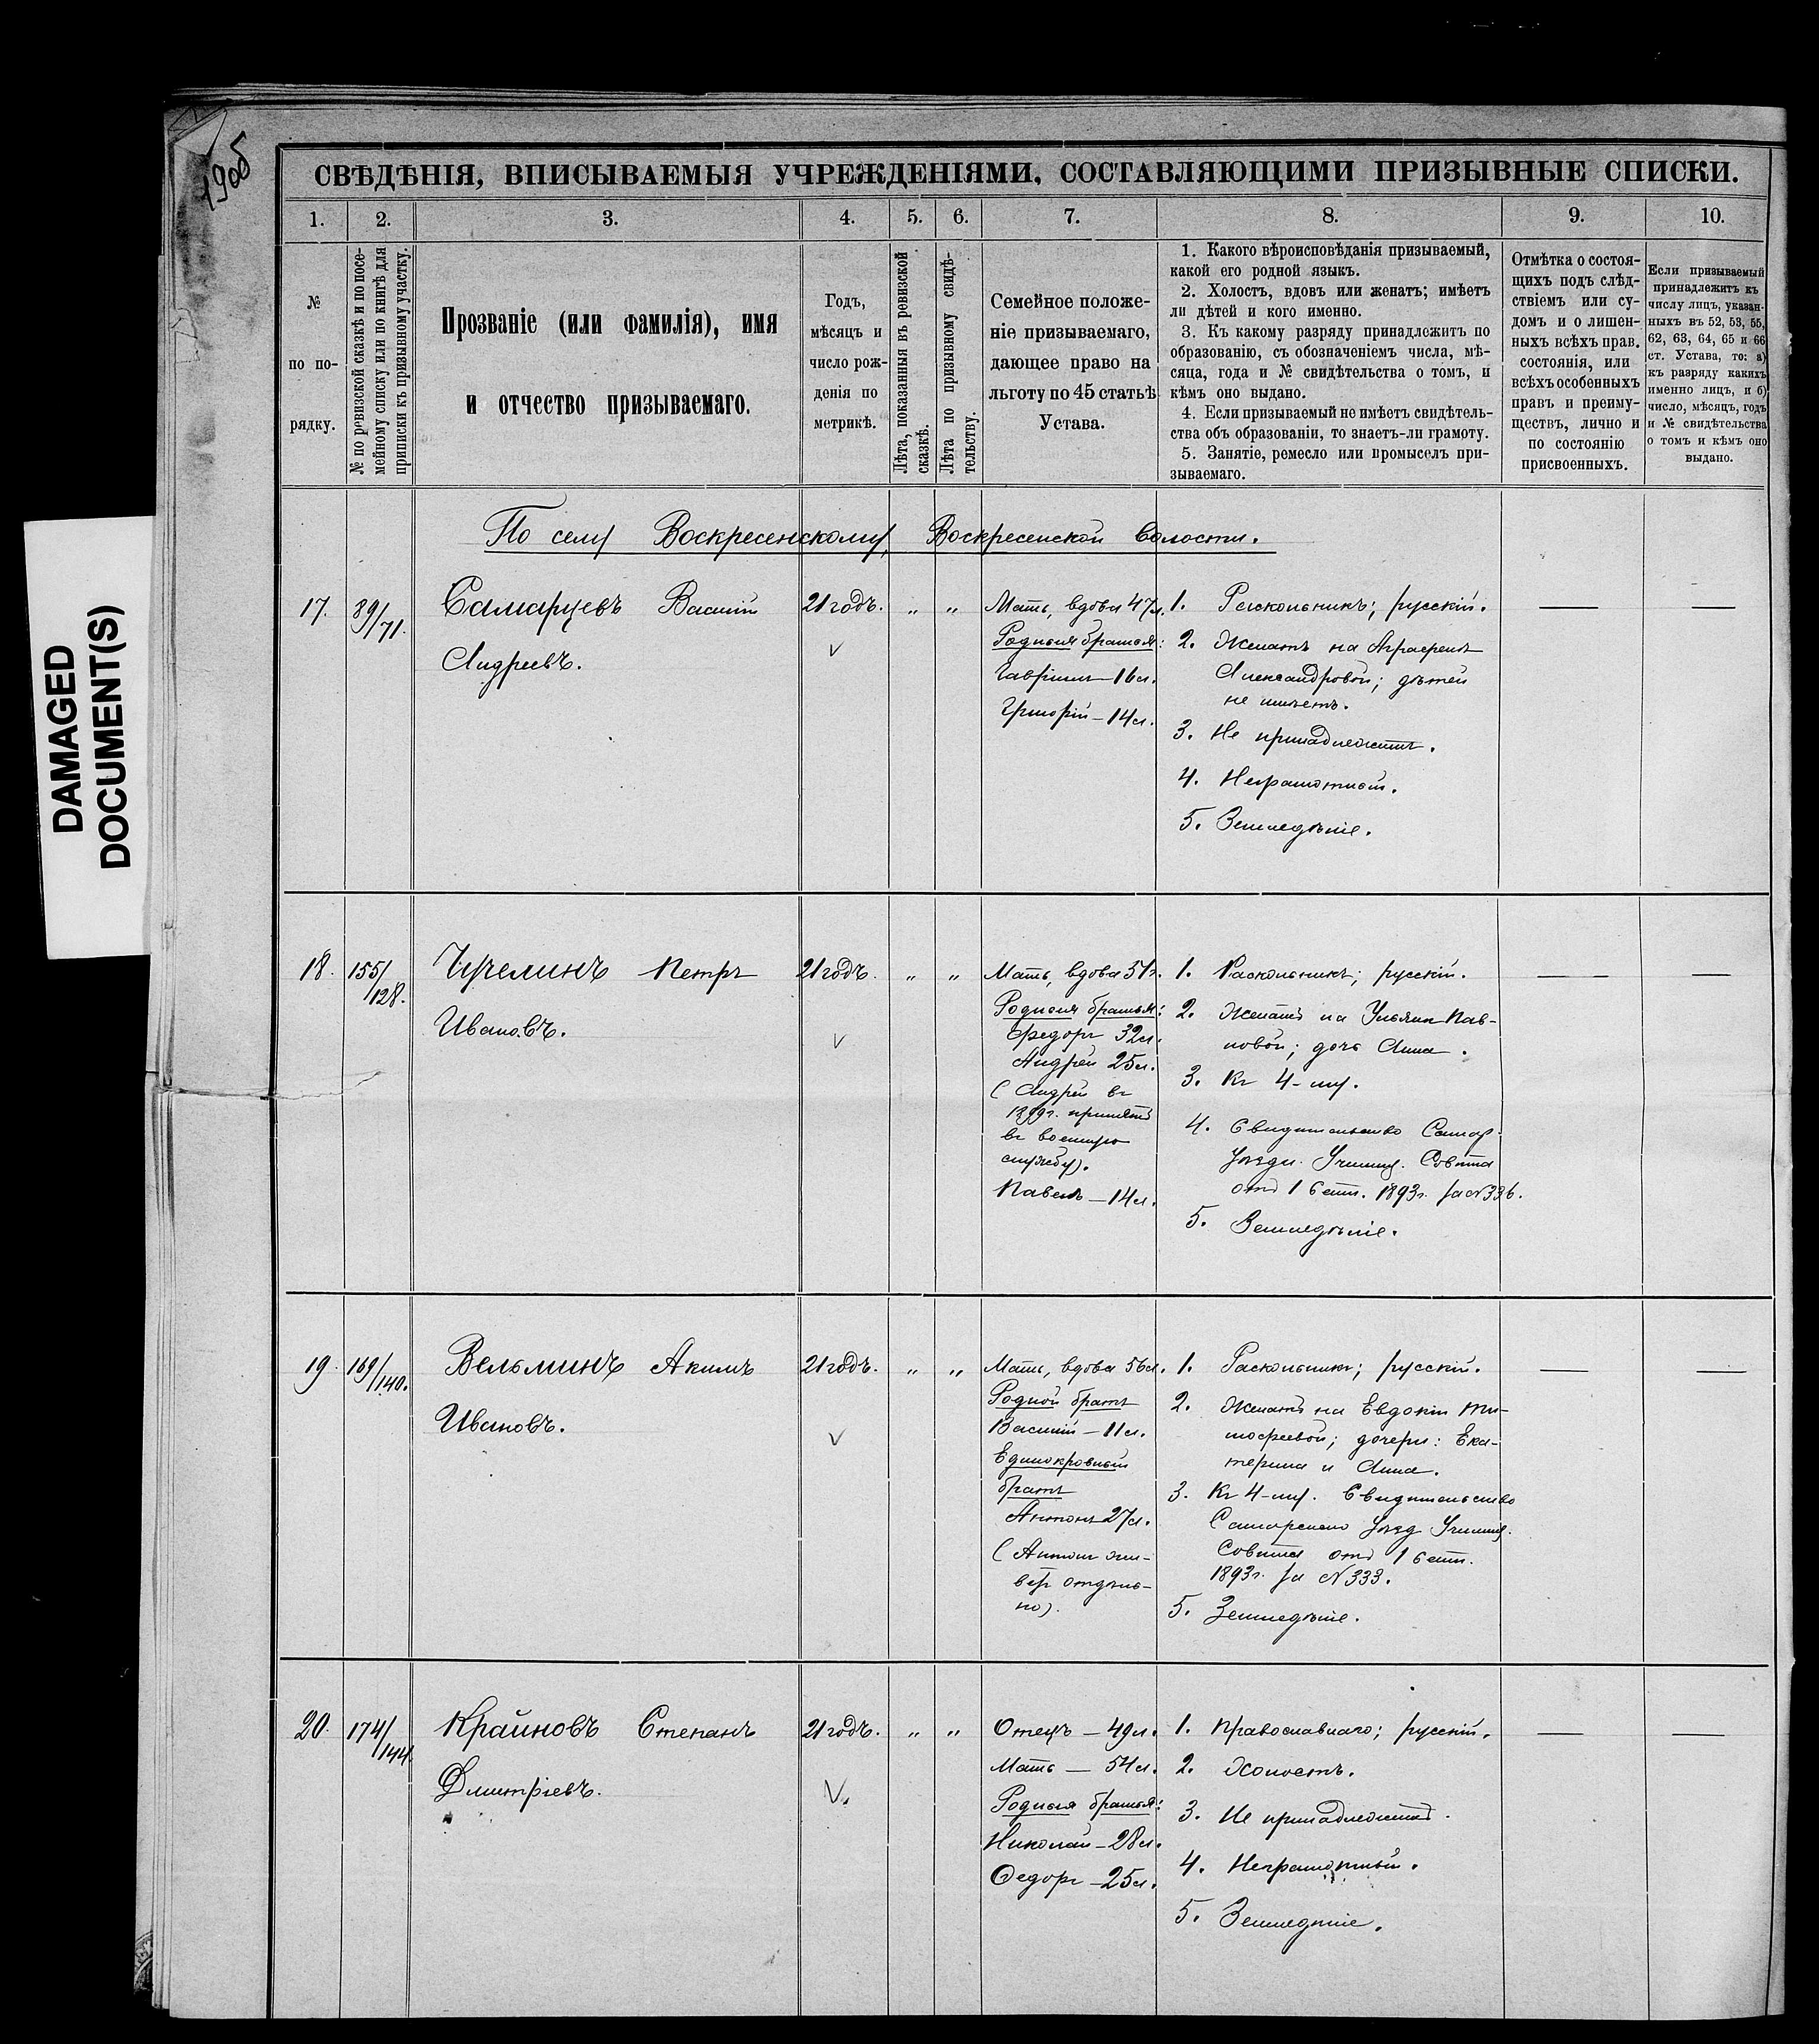 190об
DAMAGED
DOCUMENT(S)
СВѢДѢНІЯ, ВПИСЫВАЕМЫЯ УЧРЕЖДЕНІЯМИ, СОСТАВЛЯЮЩИМИ ПРИЗЫВНЫЕ СПИСКИ.
1. 2. 3. 4. 5. 6. 7. 8. 9. 10.
№
по по-
рядку.
№ по ревизской сказкѣ и по посе-
мейному списку или по книгѣ для
приписки къ призывному участку.
Прозваніе (или фамилія), имя
и отчество призываемаго.
Годъ,
мѣсяцъ и
число рож-
денія по
метрикѣ.
Лѣта, показанныя въ ревизской
сказкѣ.
Лѣта по призывному свидѣ-
тельству.
Семейное положе-
ніе призываемаго,
дающее право на
льготу по 45 статьѣ
Устава.
1. Какого вѣроисповѣданія призываемый,
какой его родной языкъ.
2. Холостъ, вдовъ или женатъ; имѣетъ
ли дѣтей и кого именно.
3. Къ какому разряду принадлежитъ по
образованію, съ обозначеніемъ числа, мѣ-
сяца, года и № свидѣтельства о томъ, и
кѣмъ оно выдано.
4. Если призываемый не имѣетъ свидѣтель-
ства объ образованіи, то знаетъ-ли грамоту.
5. Занятіе, ремесло или промыселъ при-
зываемаго.
Отмѣтка о состоя-
щихъ подъ слѣд-
ствіемъ или су-
домъ и о лишен-
ныхъ всѣхъ прав.
состоянія, или
всѣхъ особенныхъ
правъ и преиму-
ществъ, лично и
по состоянію
присвоенныхъ.
Если призываемый
принадлежитъ къ
числу лицъ, указан-
ныхъ въ 52, 53, 55,
62, 63, 64, 65 и 66
ст. Устава, то: а)
къ разряду какихъ
именно лицъ, и б)
число, мѣсяцъ, годъ
и № свидѣтельства
о томъ и кѣмъ оно
выдано.
По селу Воскресенскому, Воскресенской волости.
17. 89/71.
Самарцевъ Василій
Андреевъ.
21 годъ. „ „
Мать, вдова 47 л.
Родныя братья:
Гавріилъ — 16 л.
Григорій — 14 л.
1. Раскольникъ; русскій.
2. Женатъ на Аграфенѣ
Александровой; дѣтей
не имѣетъ.
3. Не принадлежитъ.
4. Неграмотный.
5. Земледѣліе.
18. 155/128.
Петръ
Ивановъ.
21 годъ. „ „
Мать, вдова 51 г.
Родныя братья:
Федоръ 32 л.
Андрей 25 л.
(Андрей въ
1899 г. принятъ
въ военную
службу).
Павелъ — 14 л.
1. Раскольникъ; русскій.
2. Женатъ на Ульянѣ Пав-
ловой; дочь Анна.
3. Къ 4-му.
4. Свидѣтельство Самар.
Уѣздн. Училищ. Совѣта
отъ 1 Сент. 1893 г. за № 336.
5. Земледѣліе.
19. 169/140.
Вельминъ Акимъ
Ивановъ.
21 годъ. „ „
Мать, вдова 56 л.
Родной братъ
Василій — 11 л.
Единокровный
братъ
Антонъ 27 л.
(Антонъ жи-
ветъ отдѣль-
но).
1. Раскольникъ; русскій.
2. Женатъ на Евдокіи Ти-
мофеевой; дочери: Ека-
терина и Анна.
3. Къ 4-му. Свидѣтельство
Самарскаго Уѣзд Училищ.
Совѣта отъ 1 Сент.
1893 г. за № 333.
5. Земледѣліе.
20. 174/144
Крайновъ Степанъ
Дмитріевъ.
21 годъ. „ „
Отецъ — 49 л.
Мать — 54 л.
Родныя братья:
Николай — 28 л.
Ѳедоръ — 25 л.
1. Православнаго; русскій.
2. Холостъ.
3. Не принадлежитъ.
4. Неграмотный.
5. Земледѣліе.